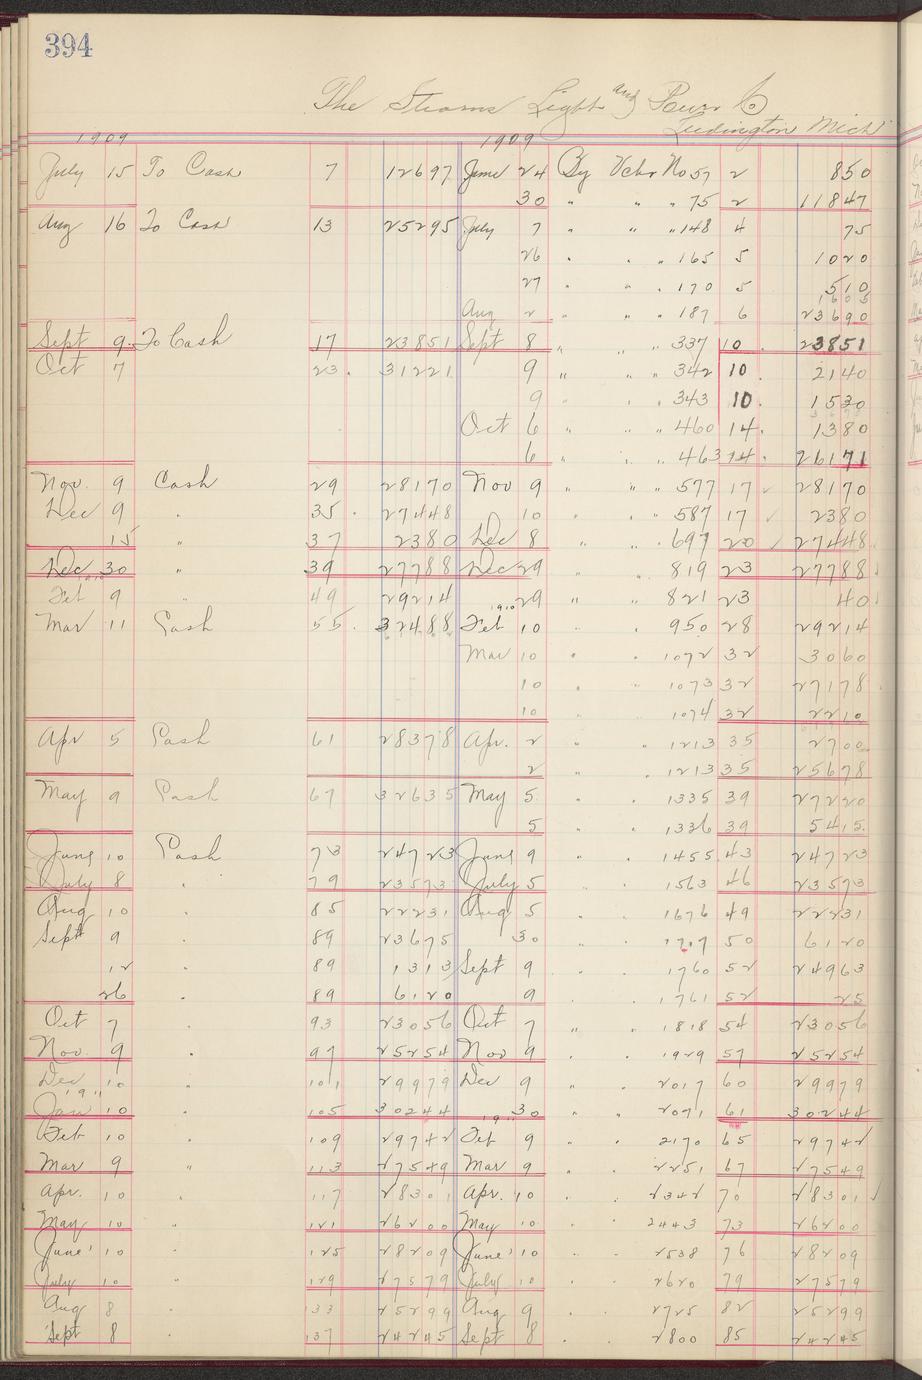 394
The Stearns Light and Power Co
Ludington Mich
1909 1909
July 15 To Cash 7 12697 June 24 By Vchr No 57 2 850
30 " " " 75 2 11847
Aug 16 To Cash 13 25295 July 7 " " " 148 4 75
26 " " " 165 5 1020
27 " " 170 5 510
1605
Aug 2 " " " 187 6 23690
Sept 9 To Cash 17 23851 Sept 8 " " " 337 10 23851
Oct 7 23 31221 9 " " " 342 10 2140
9 " " " 343 10 1530
Oct 6 " " " 460 14 1380
6 " " " 463 14 26171
Nov. 9 Cash 29 28170 Nov 9 " " " 577 17 28170
Dec 9 " 35 27448 10 " " " 587 17 2380
15 " 37 2380 Dec 8 " " " 697 20 27448
Dec 30 " 39 27788 Dec 29 " " 819 23 27788
1910
Feb 9 " 49 29214 29 " " 821 23 40
1910
Mar 11 Cash 55 32488 Feb 10 " " 950 28 29214
Mar 10 " " 1072 32 3060
10 " " 1073 32 27178
10 " " 1074 32 2210
Apr 5 Cash 61 28378 Apr. 2 " " 1213 35 2700
2 " " 1213 35 25678
May 9 Cash 67 32635 May 5 " " 1335 39 27220
5 " " 1336 39 5415
June 10 Cash 73 24723 June 9 " " 1455 43 24723
July 8 " 79 23573 July 5 " " 1563 46 23573
Aug 10 " 85 22231 Aug 5 " " 1676 49 22231
Sept 9 " 89 23675 30 " " 1707 50 6120
12 " 89 1313 Sept 9 " " 1760 52 24963
26 " 89 6120 9 " " 1761 52 25
Oct 7 " 93 23056 Oct 7 " " 1818 54 23056
Nov. 9 " 97 25254 Nov 9 " " 1929 57 25254
Dec 10 " 101 29979 Dec 9 " " 2017 60 29979
1911
Jan 10 " 105 30244 30 " " 2071 61 30244
1911
Feb 10 " 109 29742 Feb 9 " " 2170 65 29742
Mar 9 " 113 27549 Mar 9 " " 2251 67 27549
Apr. 10 " 117 28301 Apr. 10 " " 2342 70 28301
May 10 " 121 26200 May 10 " " 2443 73 26200
June 10 " 125 28209 June 10 " " 2538 76 28209
July 10 " 129 27579 July 10 " " 2620 79 27579
Aug 8 " 133 25299 Aug 9 " " 2725 82 25299
Sept 8 " 137 24245 Sept 8 " " 2800 85 24245